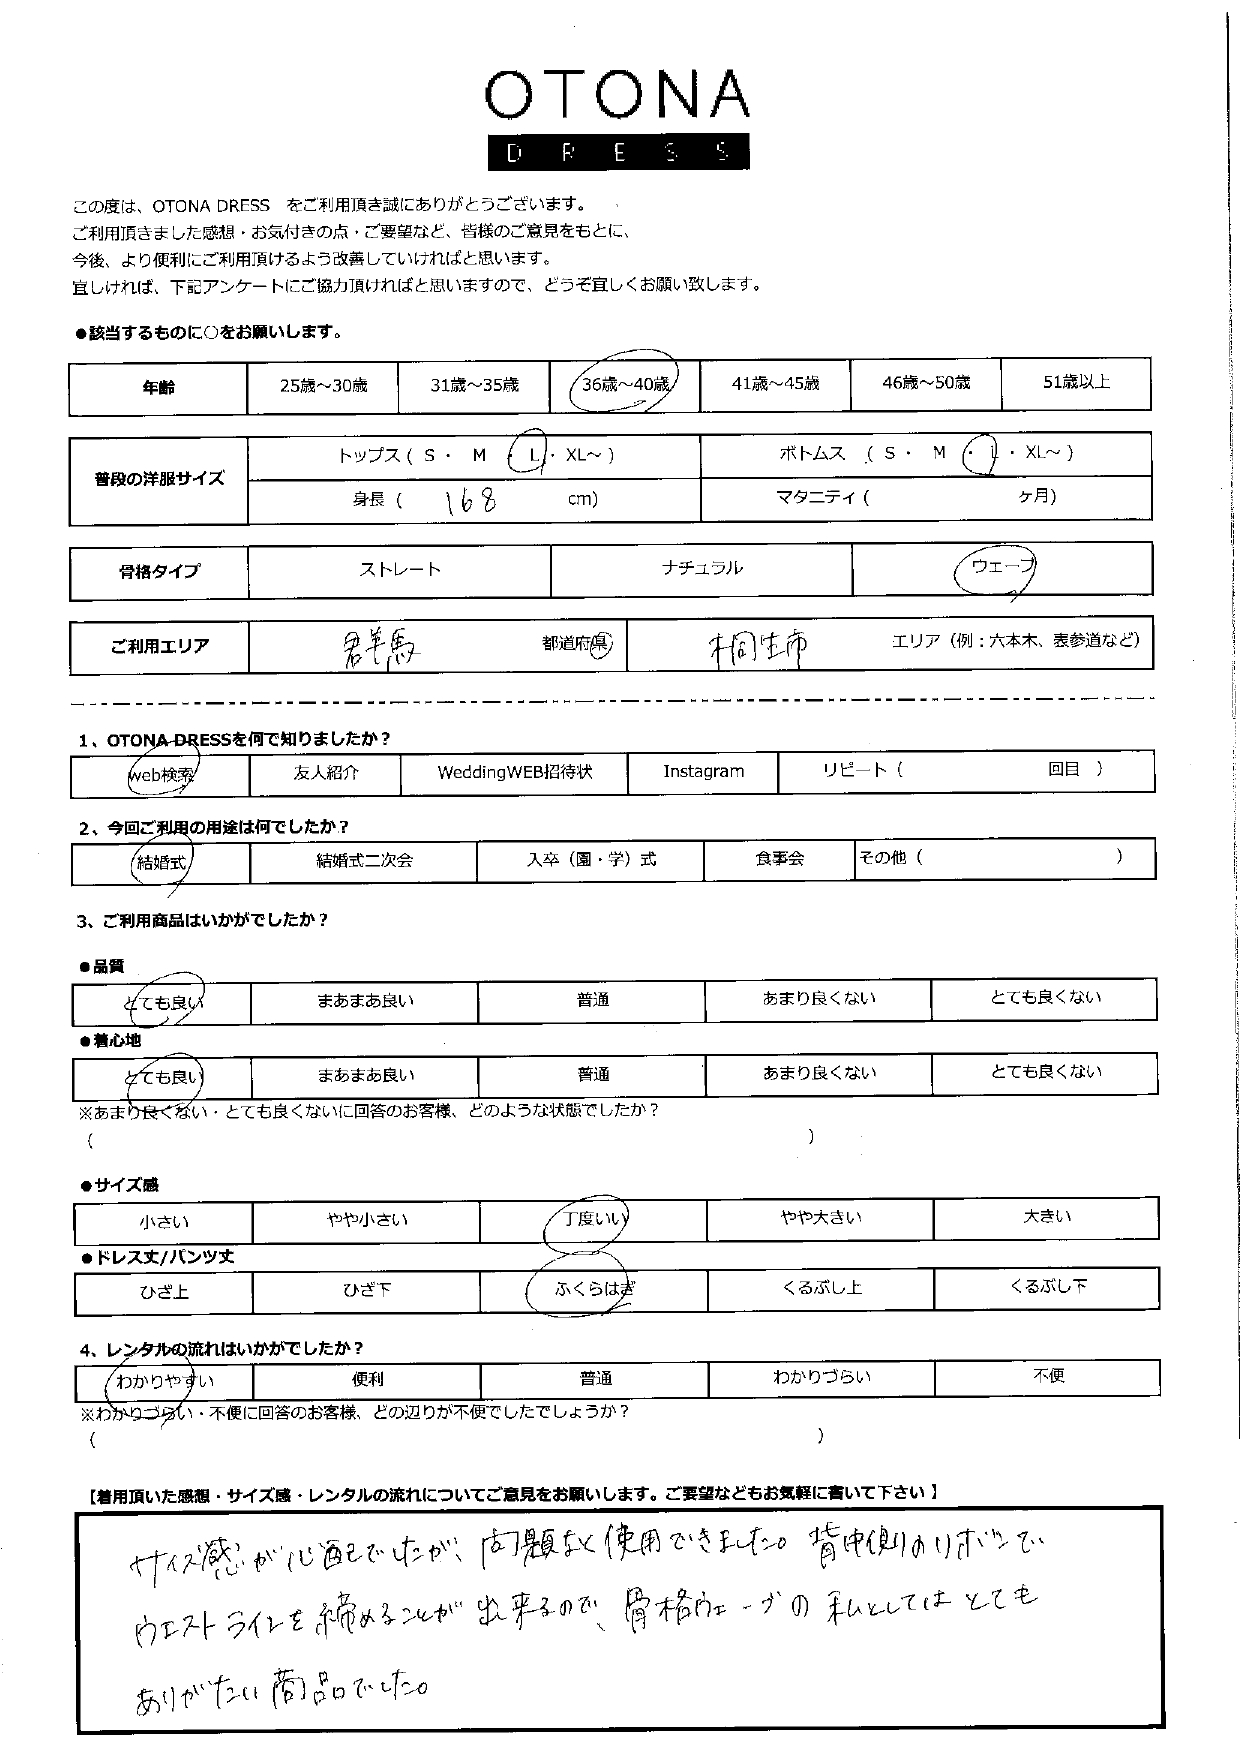 OTONA
DRESS
この度は、OTONA DRESS をご利用頂き誠にありがとうございます。
ご利用頂きました感想・お気付きの点・ご要望など、皆様のご意見をもとに、
今後、より便利にご利用頂けるよう改善していければと思います。
宜しければ、下記アンケートにご協力頂ければと思いますので、どうぞ宜しくお願い致します。
●該当するものに○をお願いします。
年齢 25歳～30歳 31歳～35歳 36歳～40歳 41歳～45歳 46歳～50歳 51歳以上
普段の洋服サイズ トップス ( S ・ M ・ L ・ XL～ ) ボトムス ( S ・ M ・ L ・ XL～ )
身長 ( 168 cm) マタニティ ( ヶ月)
骨格タイプ ストレート ナチュラル ウェーブ
ご利用エリア 群馬 都道府県 桐生市 エリア（例：六本木、表参道など）
1、OTONA DRESSを何で知りましたか？
web検索 友人紹介 WeddingWEB招待状 Instagram リピート ( 回目 )
2、今回ご利用の用途は何でしたか？
結婚式 結婚式二次会 入卒（園・学）式 食事会 その他 ( )
3、ご利用商品はいかがでしたか？
●品質
とても良い まあまあ良い 普通 あまり良くない とても良くない
●着心地
とても良い まあまあ良い 普通 あまり良くない とても良くない
※あまり良くない・とても良くないに回答のお客様、どのような状態でしたか？
( )
●サイズ感
小さい やや小さい 丁度いい やや大きい 大きい
●ドレス丈/パンツ丈
ひざ上 ひざ下 ふくらはぎ くるぶし上 くるぶし下
4、レンタルの流れはいかがでしたか？
わかりやすい 便利 普通 わかりづらい 不便
※わかりづらい・不便に回答のお客様、どの辺りが不便でしたでしょうか？
( )
【着用頂いた感想・サイズ感・レンタルの流れについてご意見をお願いします。ご要望などもお気軽に書いて下さい】
サイズ感が心配でしたが、問題なく使用できました。背中側のリボンで
ウエストラインを締めることが出来るので、骨格ウェーブの私としてはとても
ありがたい商品でした。